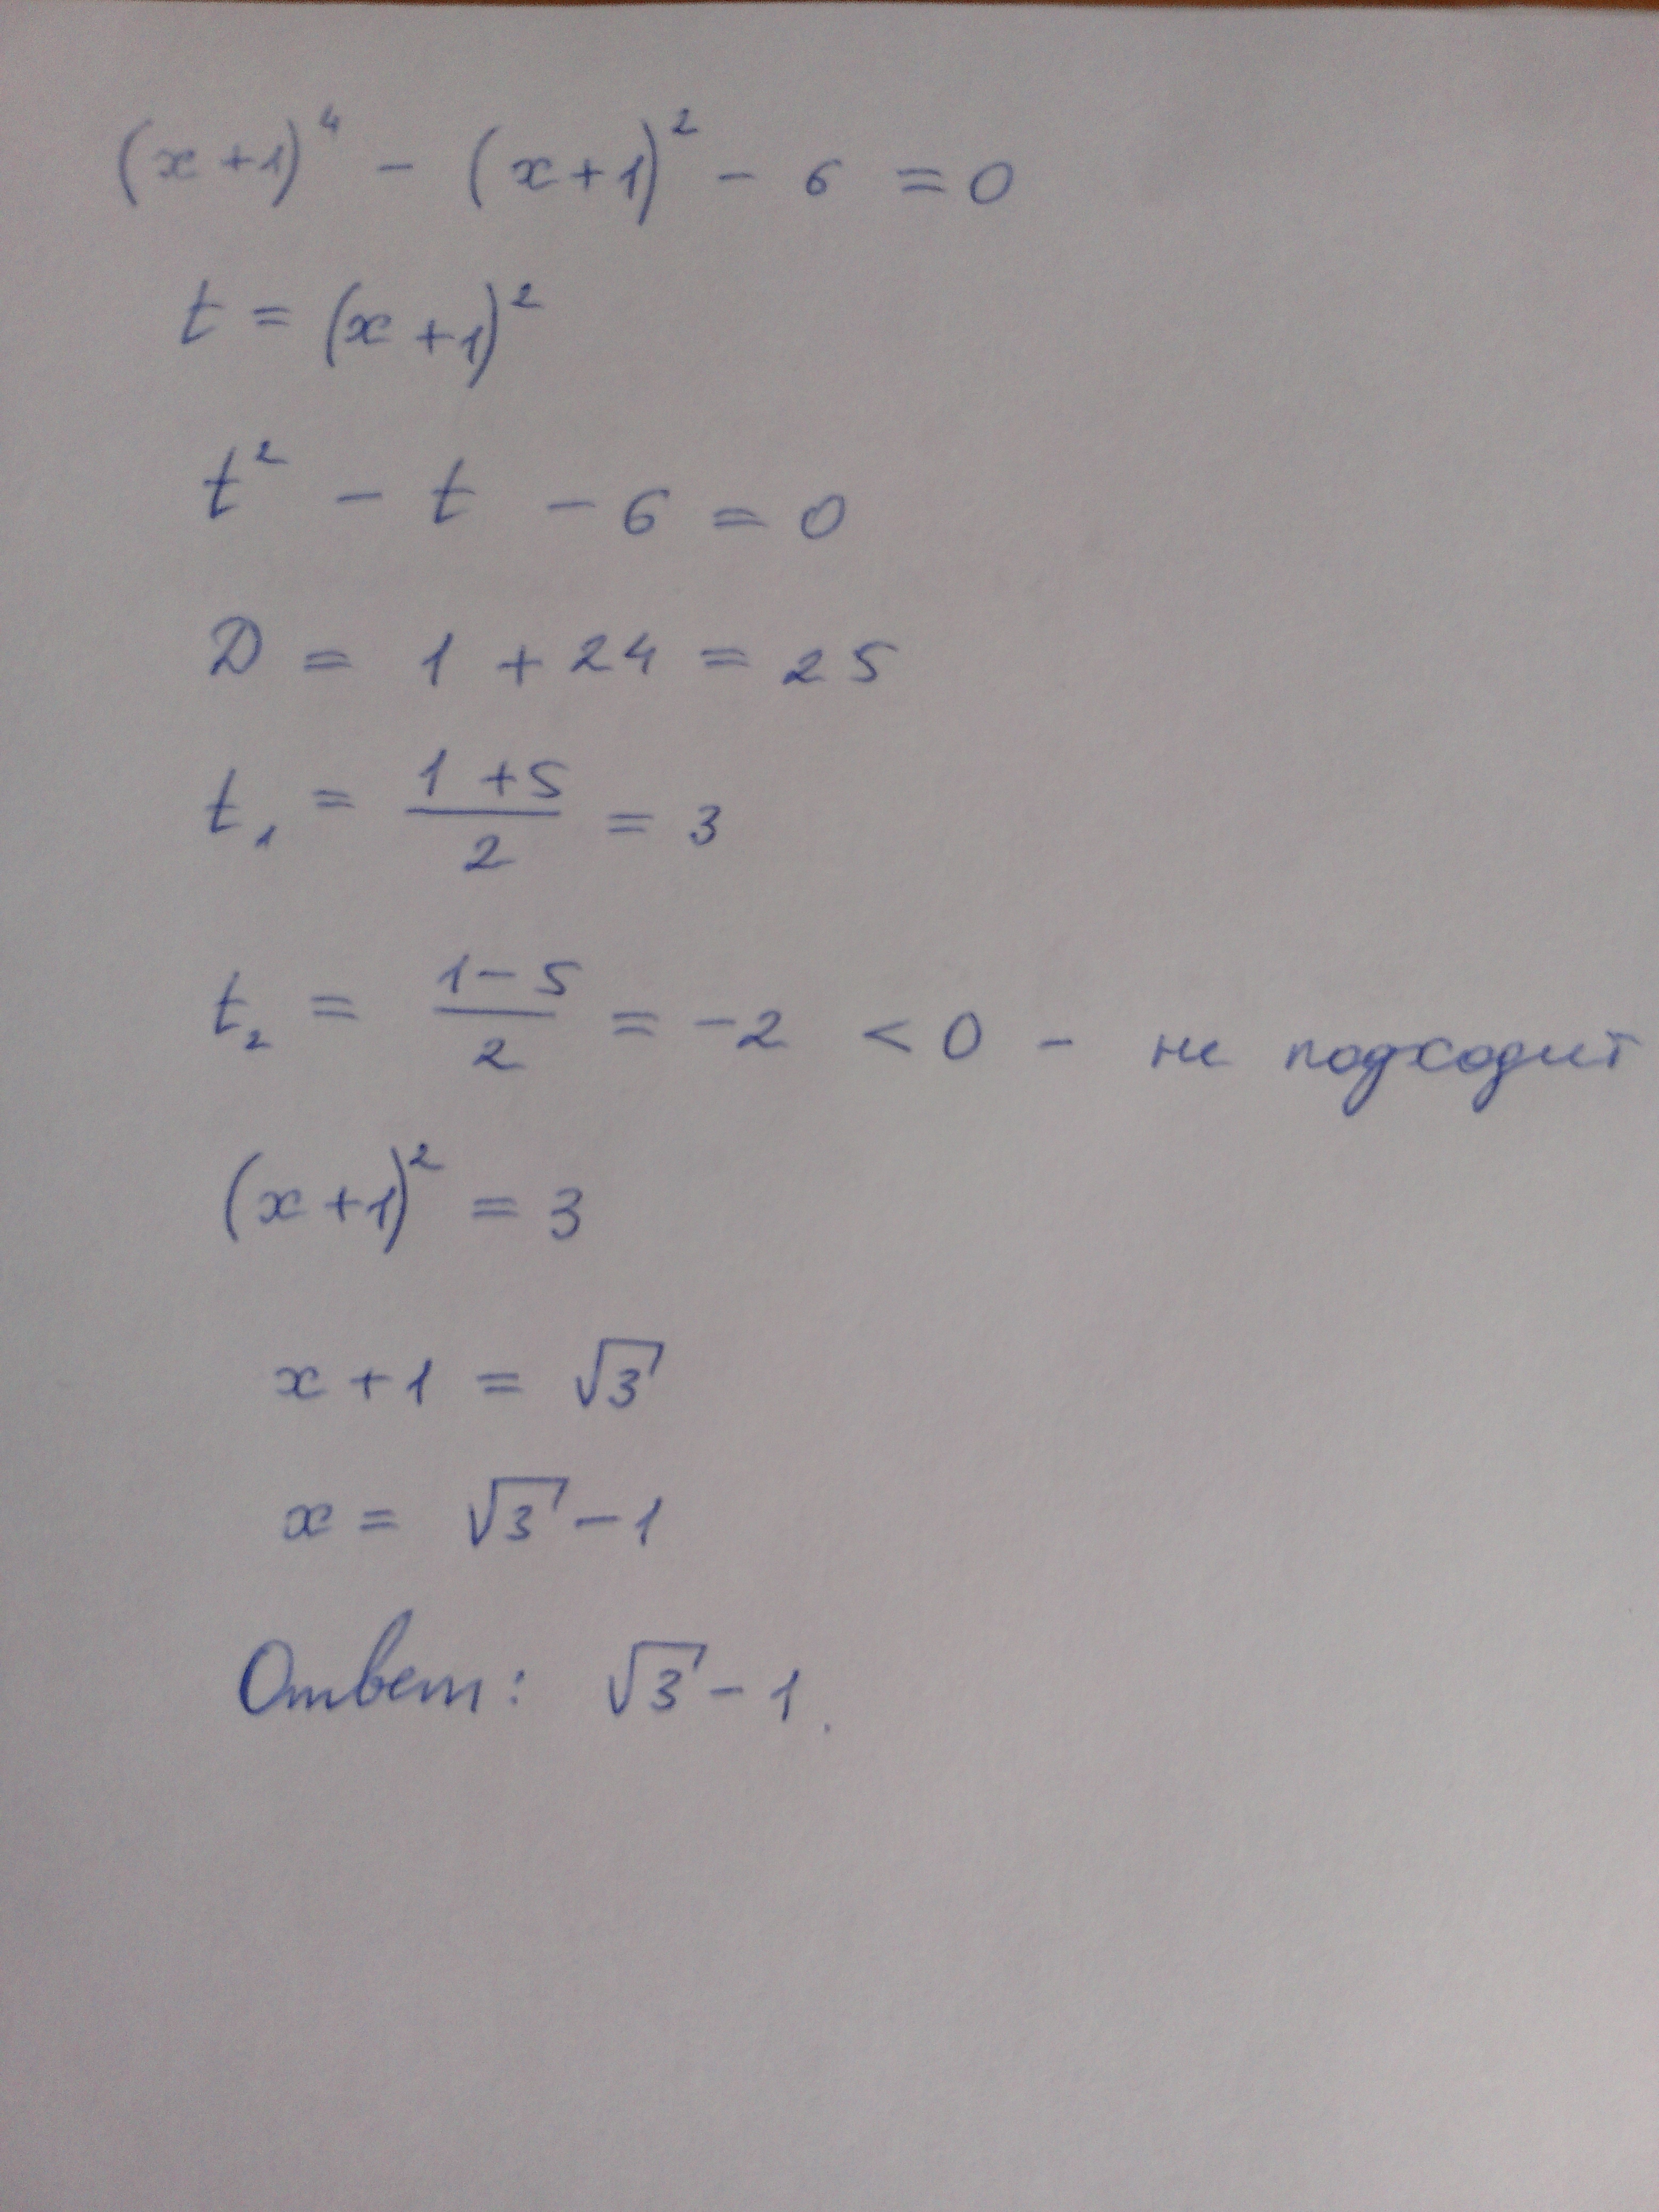 (x+1)⁴ - (x+1)² - 6 = 0
t = (x+1)²
t² - t - 6 = 0
D = 1 + 24 = 25
t₁ = (1+5)/2 = 3
t₂ = (1-5)/2 = -2 < 0 - не подходит
(x+1)² = 3
x+1 = √3
x = √3 - 1
Ответ: √3 - 1.